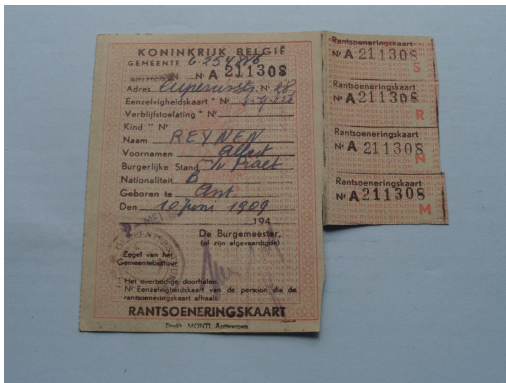 KONINKRIJK BELGIE
GEMEENTE
Nr A 211308
Adres Nr 28,
Eenzelvigheidskaart * Nr
Verblijfstoelating * Nr
Kind * Nr
Naam REYNEN
Voornamen
Burgerlijke Stand
Nationaliteit B
Geboren te Ant
Den 10 Juni 1909
194
De Burgemeester,
(of zijn afgevaardigde)
Zegel van het
Gemeentebestuur
Het overbodige doorhalen.
Nr Eenzelvigheidskaart van de persoon die de
rantsoeneringskaart afhaalt.
RANTSOENERINGSKAART
Drukk. MONTI, Antwerpen
Rantsoeneringskaart
Nr A 211308
S
Rantsoeneringskaart
Nr A 211308
R
Rantsoeneringskaart
Nr A 211308
N
Rantsoeneringskaart
Nr A 211308
M